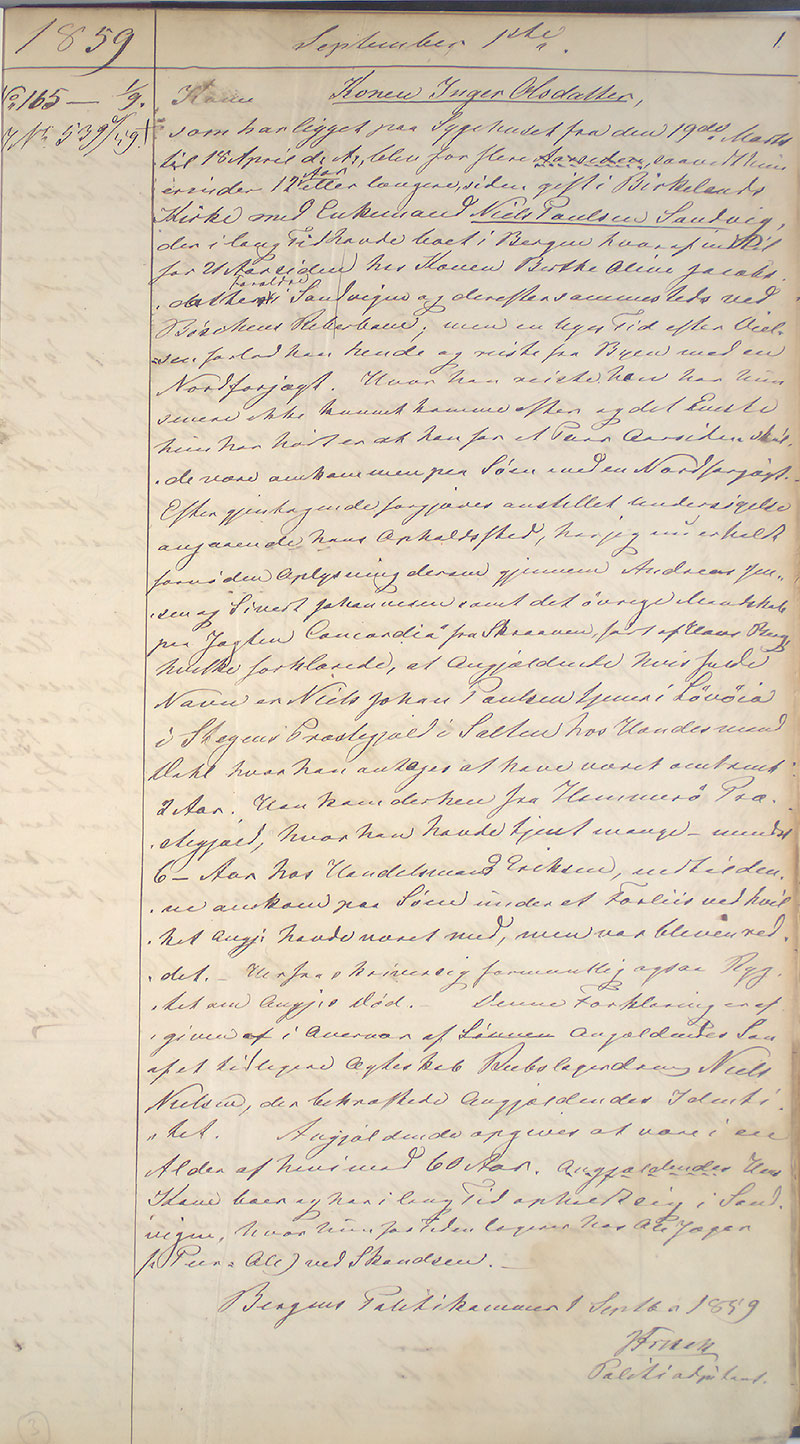 1859
September 1ste.
1
No 165 — 1/9.
J No 539
Konen Inger Olsdatter,
som har ligget paa Sygehuset fra den 19de Marts
til 18 April d. A., blev for flere Aar siden,
12 Aar eller længere, siden gift i Birkelands
Kirke med Enkemand Niels Paulsen Sandvig,
der i lang Tid havde boet i Bergen
for Aar siden hos Konen Berthe Oline Jacobs-
datter i Sandvigen og derefter sammesteds ved
Reberbane; men en Uges Tid efter Viel-
sen forlod han hende og reiste fra Byen med en
Nordfarjægt. Hvor han reiste hen har hun
senere ikke kunnet komme efter og det Eneste
hun har hørt er at han for et Par Aar siden skul-
de være omkommen paa Søen med en Nordfarjægt.
Efter gjentagende forgjæves anstillet Undersøgelse
angaaende hans Opholdssted, har jeg nu erholdt
fornøden Oplysning derom gjennem Andreas Jen-
sen og Sivert Johannesen samt det øvrige Mandskab
paa Jagten "Concordia" fra Skraaven, ført af Hans
hvilke forklarede, at Angjældende hvis fulde
Navn er Niels Johan Paulsen tjener i Løvøia
i Stegens Præstegjæld i Salten hos Handelsmand
Dahl hvor han antages at have været omtrent
2 Aar. Han kom derhen fra Hammerø Præ-
stegjæld, hvor han havde tjent mange – mindst
6 – Aar hos Handelsmand Eriksen,
omkom paa Søen under et Forliis ved hvil-
ket Angj: havde været med, men var bleven red-
det. – Herfra skriver sig formentlig ogsaa Ryg-
tet om Angjs Død. – Denne Forklaring er af-
given i Overvær af Angjældendes Søn
af et tidligere Ægteskab Rebslagerdreng Niels
Nielsen, der bekræftede Angjældendes Identi-
tet. Angjældende opgives at være i en
Alder af henimod 60 Aar. Angjældendes
Kone boer og har i lang Tid opholdt sig i Sand-
vigen, hvor hun for Tiden logerer hos Ole Jæger
(Peer Ole) ved Skandsen. –
Bergens Politikammer 1 Septbr 1859
Politiadjutant.